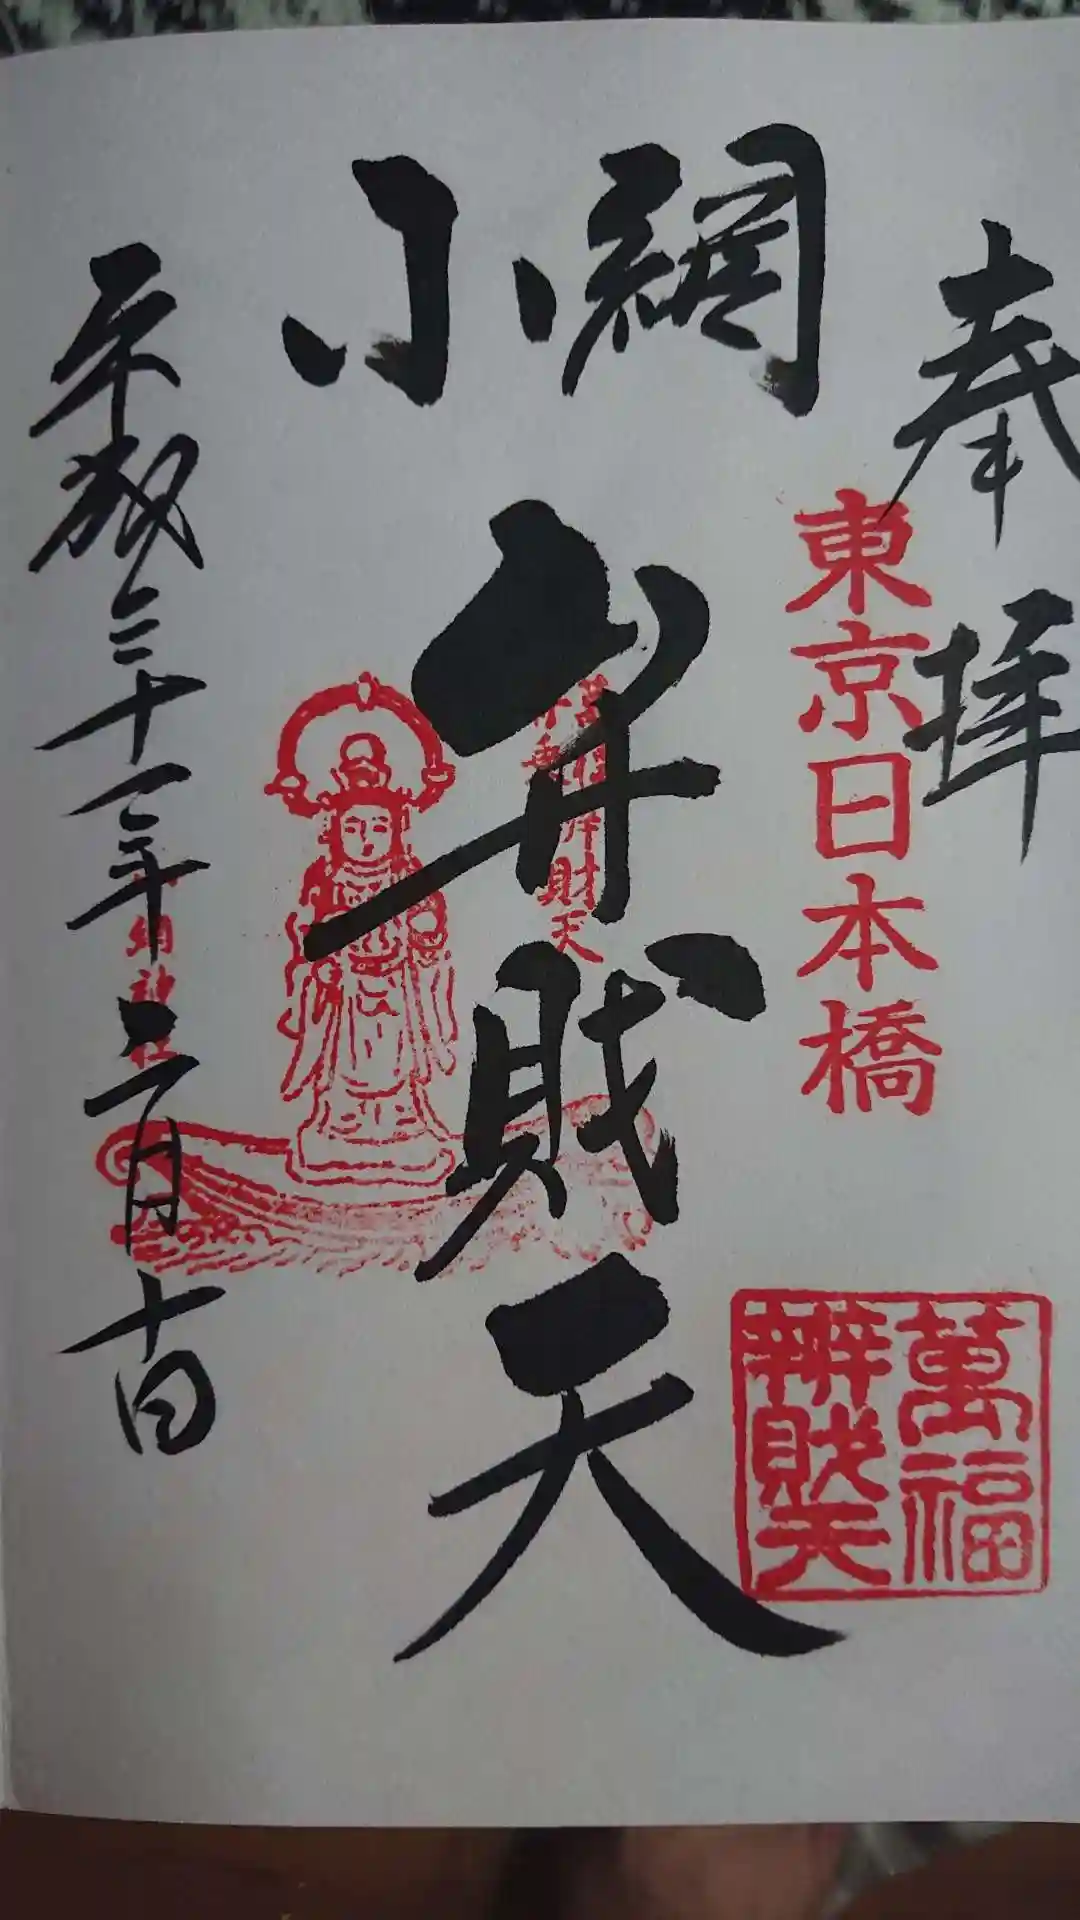 奉拝
東京日本橋
小網
弁財天
萬福
舟乗弁財天
小網神社
平成三十一年三月十日
萬福
辨財天